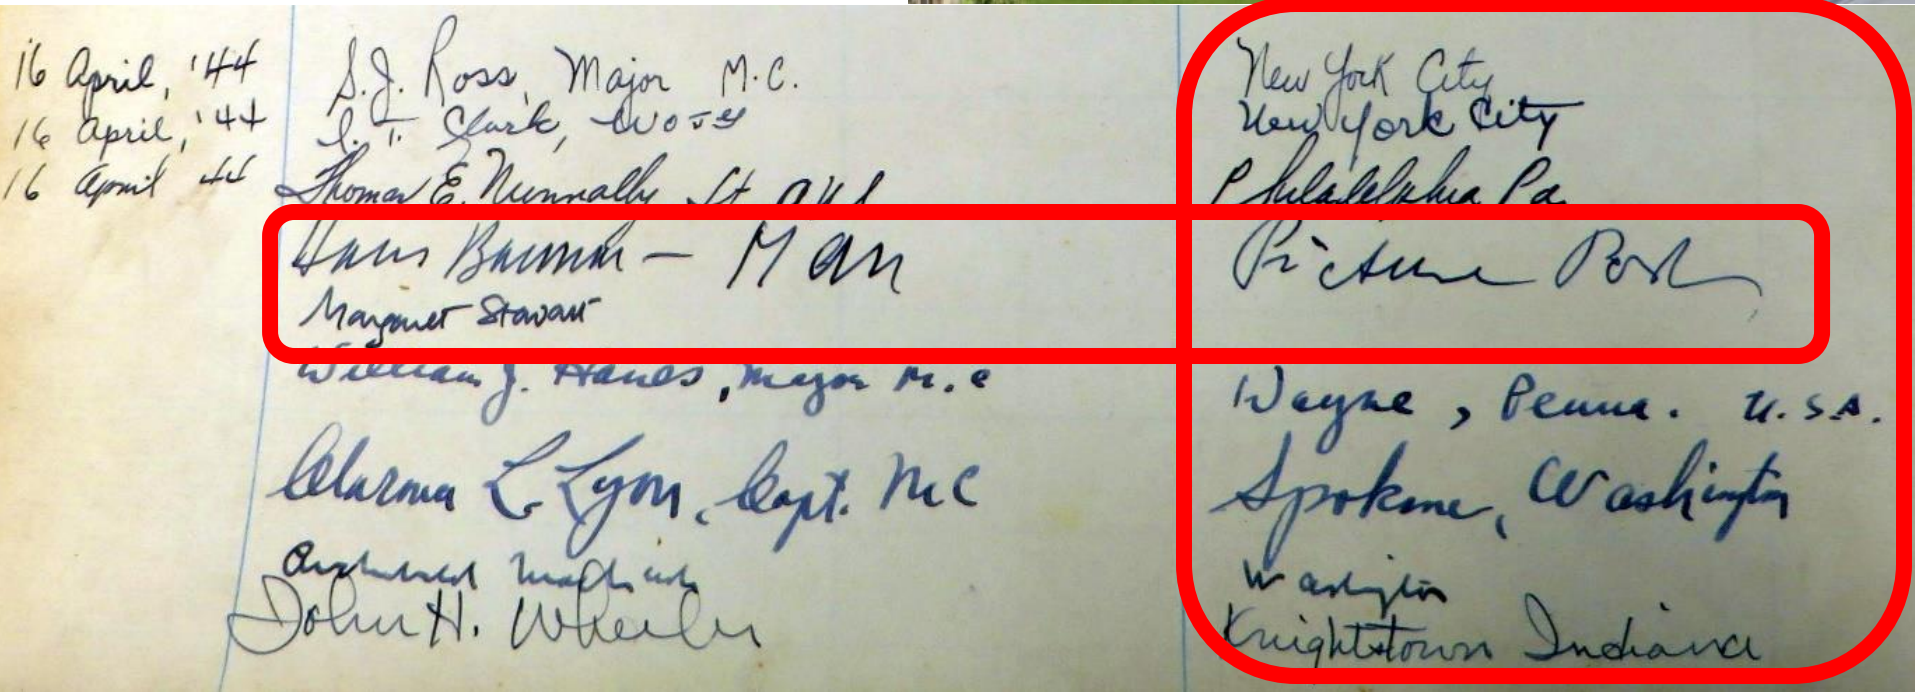 16 April, '44 S.J. Ross, Major M.C. New York City
16 April, '44 Clark, New York City
16 April 44 Thomas E. Nunnally Philadelphia Pa
Hans Bauman - Man Picture Post
Margaret Stewart
William J. Hanes, Major M.C Wayne, Penna. U.S.A.
Clarence L. Lyon, Capt. MC Spokane, Washington
Washington
John H. Wheeler Knightstown Indiana